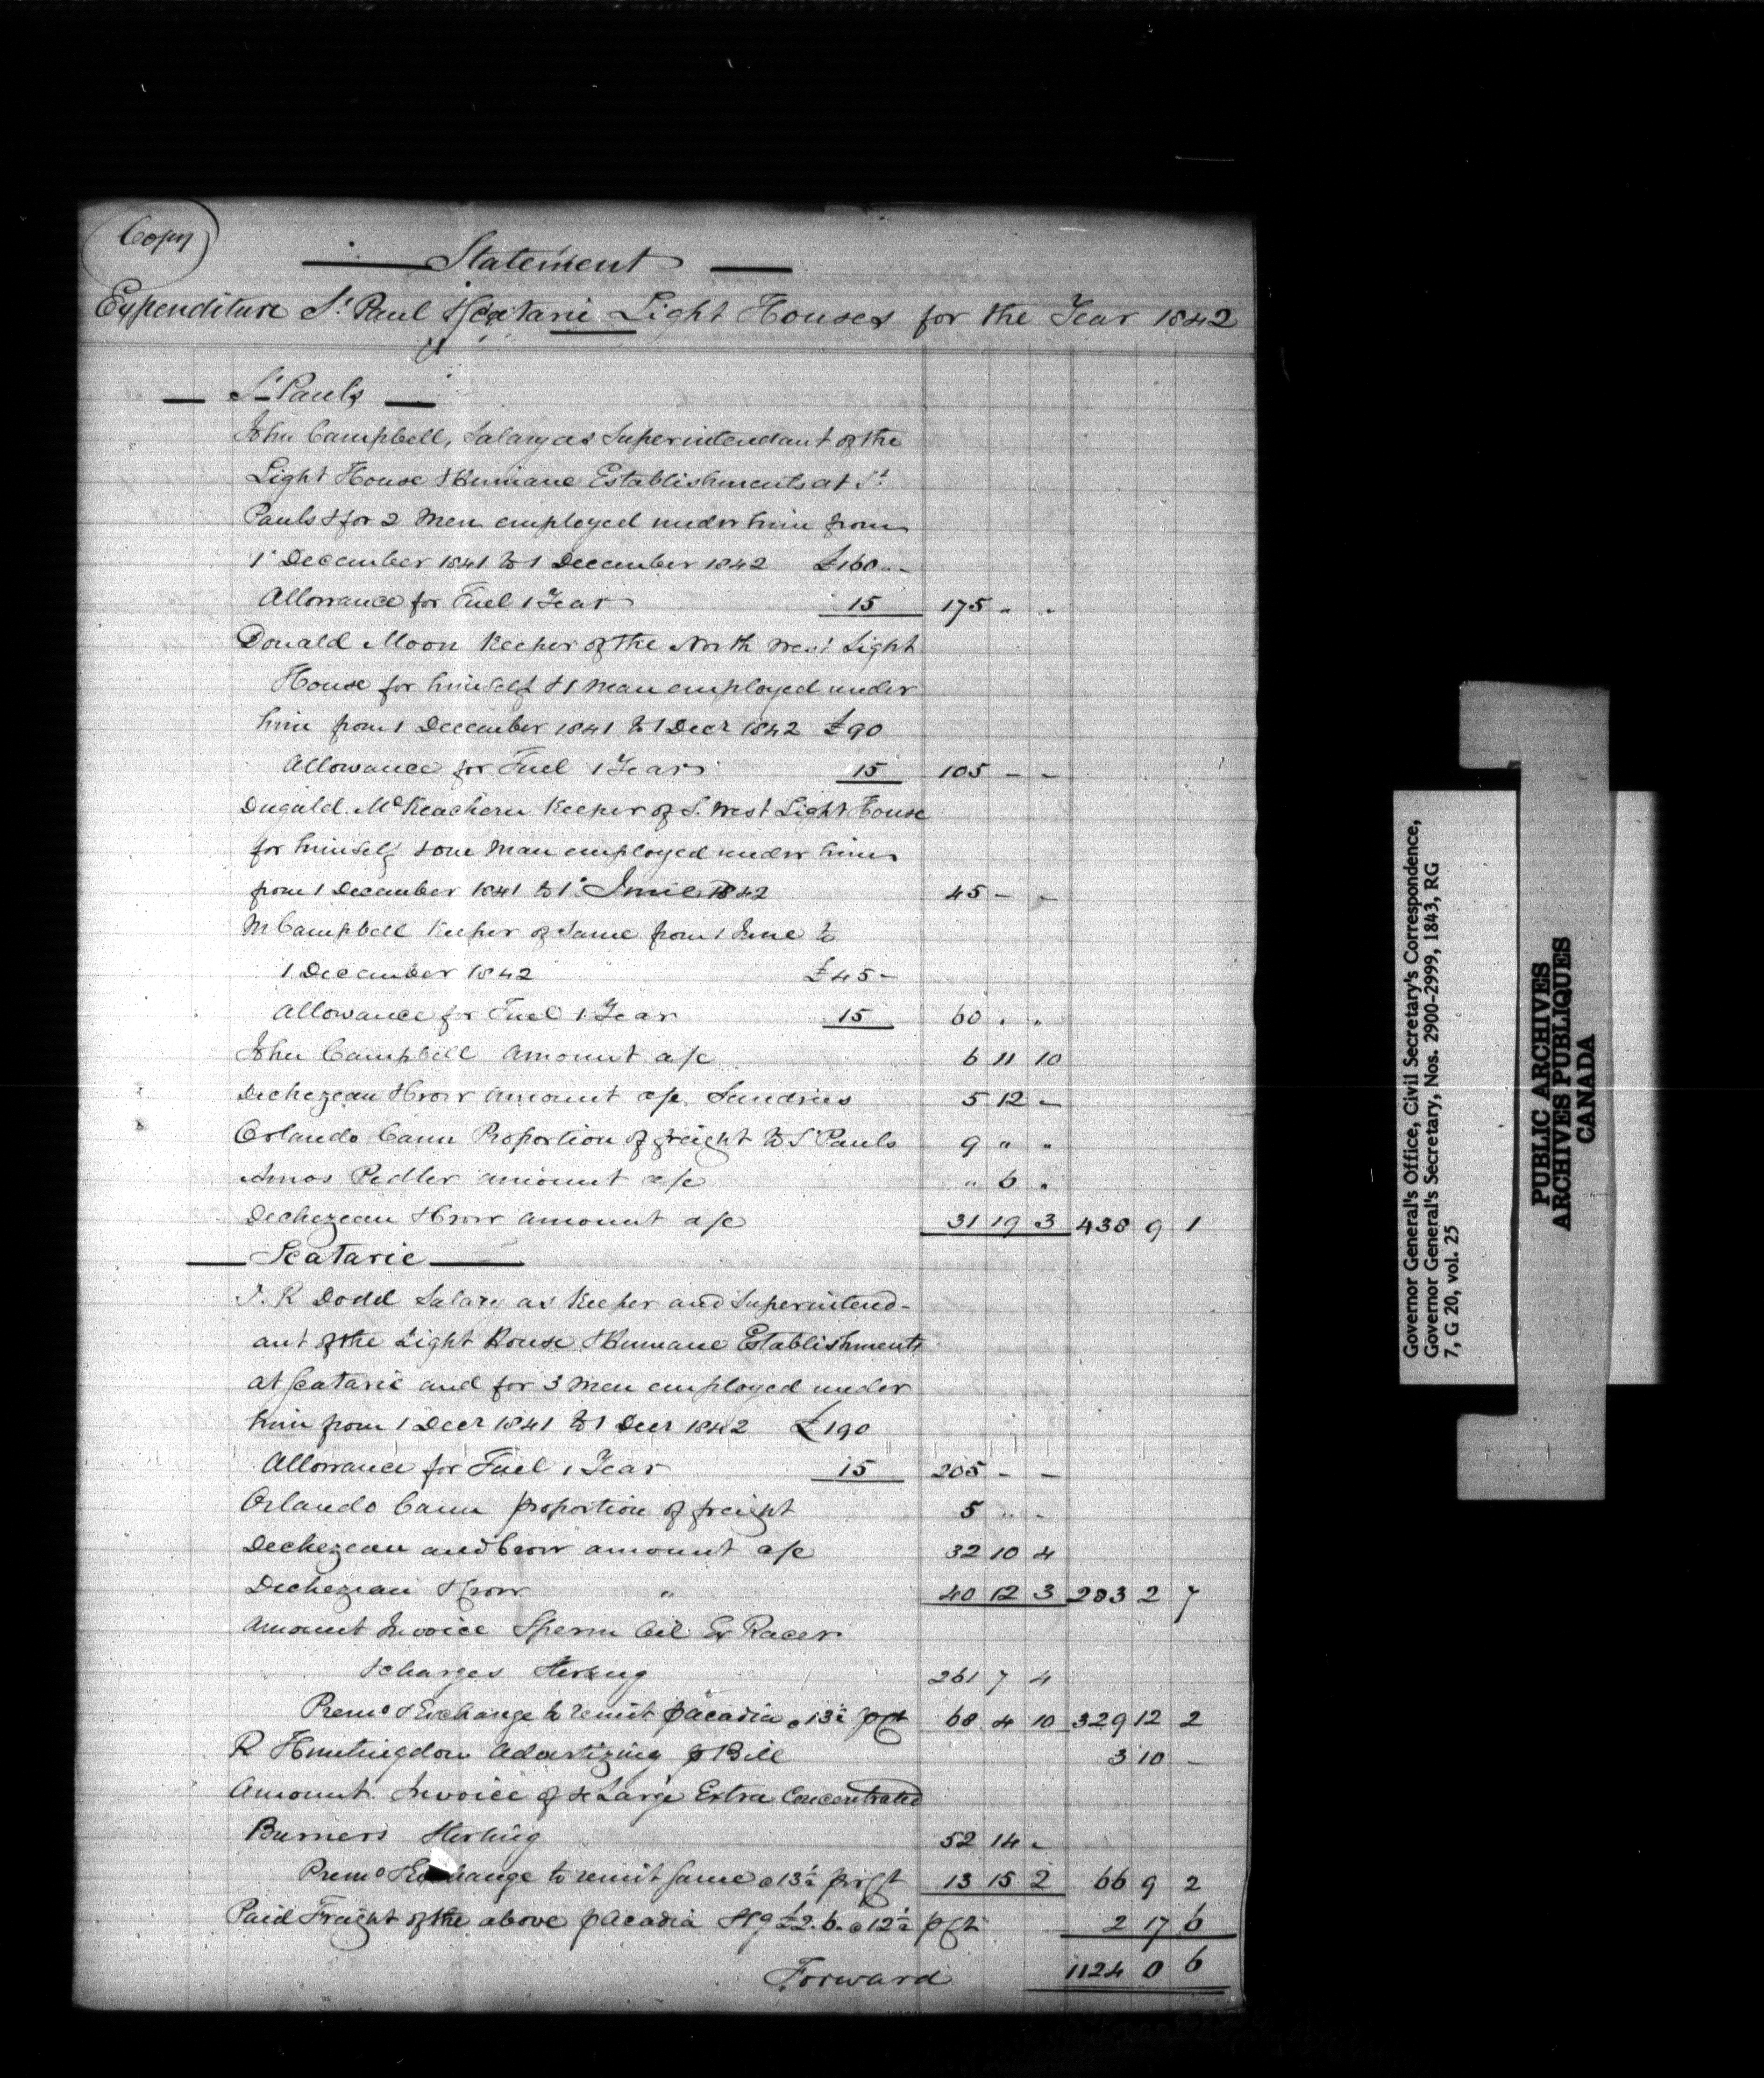 Copy
Statement
Expenditure St. Paul & Scatarie Light Houses for the Year 1842
St Pauls
John Campbell, Salary as Superintendant of the
Light House & Humane Establishments at St.
Pauls & for 2 Men employed under him from
1st December 1841 to 1 December 1842 £160 " -
Allowance for Fuel 1 Year 15 175 " "
Donald Moon Keeper of the North West Light
House for himself & 1 Man employed under
him from 1 December 1841 to 1 Decr 1842 £90
Allowance for Fuel 1 Year 15 105 - -
Dugald McKeachern Keeper of S. West Light House
for himself & one Man employed under him
from 1 December 1841 to 1st June 1842 45 - -
M Campbell Keeper of Same from 1 June to
1 December 1842 £45 -
Allowance for Fuel 1 Year 15 60 " "
John Campbell Amount a/c 6 11 10
Dechezeau & Crow Amount a/c Sundries 5 12 -
Orlando Cann Proportion of freight to St Pauls 9 " "
Amos Pedler amount a/c " 6 "
Dechezeau & Crow amount a/c 31 19 3 438 9 1
Scatarie
J. R Dodd Salary as Keeper and Superintend-
ant of the Light House & Humane Establishments
at Scatarie and for 3 Men employed under
him from 1 Decr 1841 to 1 Decr 1842 £190
Allowance for Fuel 1 Year 15 205 - -
Orlando Cann proportion of freight 5 " -
Dechezeau and Crow amount a/c 32 10 4
Dechezeau & Crow " 40 12 3 283 2 7
Amount Invoice Sperm Oil Ex Racer
& charges Sterling 261 7 4
Premo & Exchange to remit p Acadia @ 13½ p Ct 68 4 10 329 12 2
R Huntingdon Advertizing p Bill 3 10 -
Amount Invoice of Large Extra Concentrated
Burners Sterling 52 14 -
Premo & Exchange to remit Same @ 13½ pr Ct 13 15 2 66 9 2
Paid Freight of the above p Acadia Stg £2.6. @ 12½ p Ct 2 17 6
Forward 1124 0 6
Governor General's Office, Civil Secretary's Correspondence,
Governor General's Secretary, Nos. 2900-2999, 1843, RG
7, G 20, vol. 25
PUBLIC ARCHIVES
ARCHIVES PUBLIQUES
CANADA